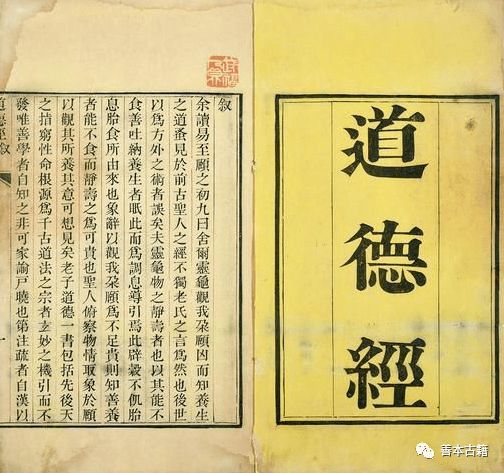 道德經
叙
余讀易至頤之初九曰舍爾靈龜觀我朵頤凶而知養生
之道蚤見於前古聖人之經不獨老氏之言爲然也後世
以爲方外之術者誤矣夫靈龜物之靜壽者也以其能不
食善吐納養生者眂此而爲調息導引焉此辟穀不飢胎
息胎食所由來也象辭以觀我朵頤爲不足貴則知善養
者能不食而靜壽之爲可貴也聖人俯察物情取象於頤
以觀其所養其意可想見矣老子道德一書包括先後天
之窮性命根源爲千古道法之宗者玄妙之機引而不
發唯善學者自知之非可家諭戸曉也第注疏者自漢以
道德經叙
一
善本古籍